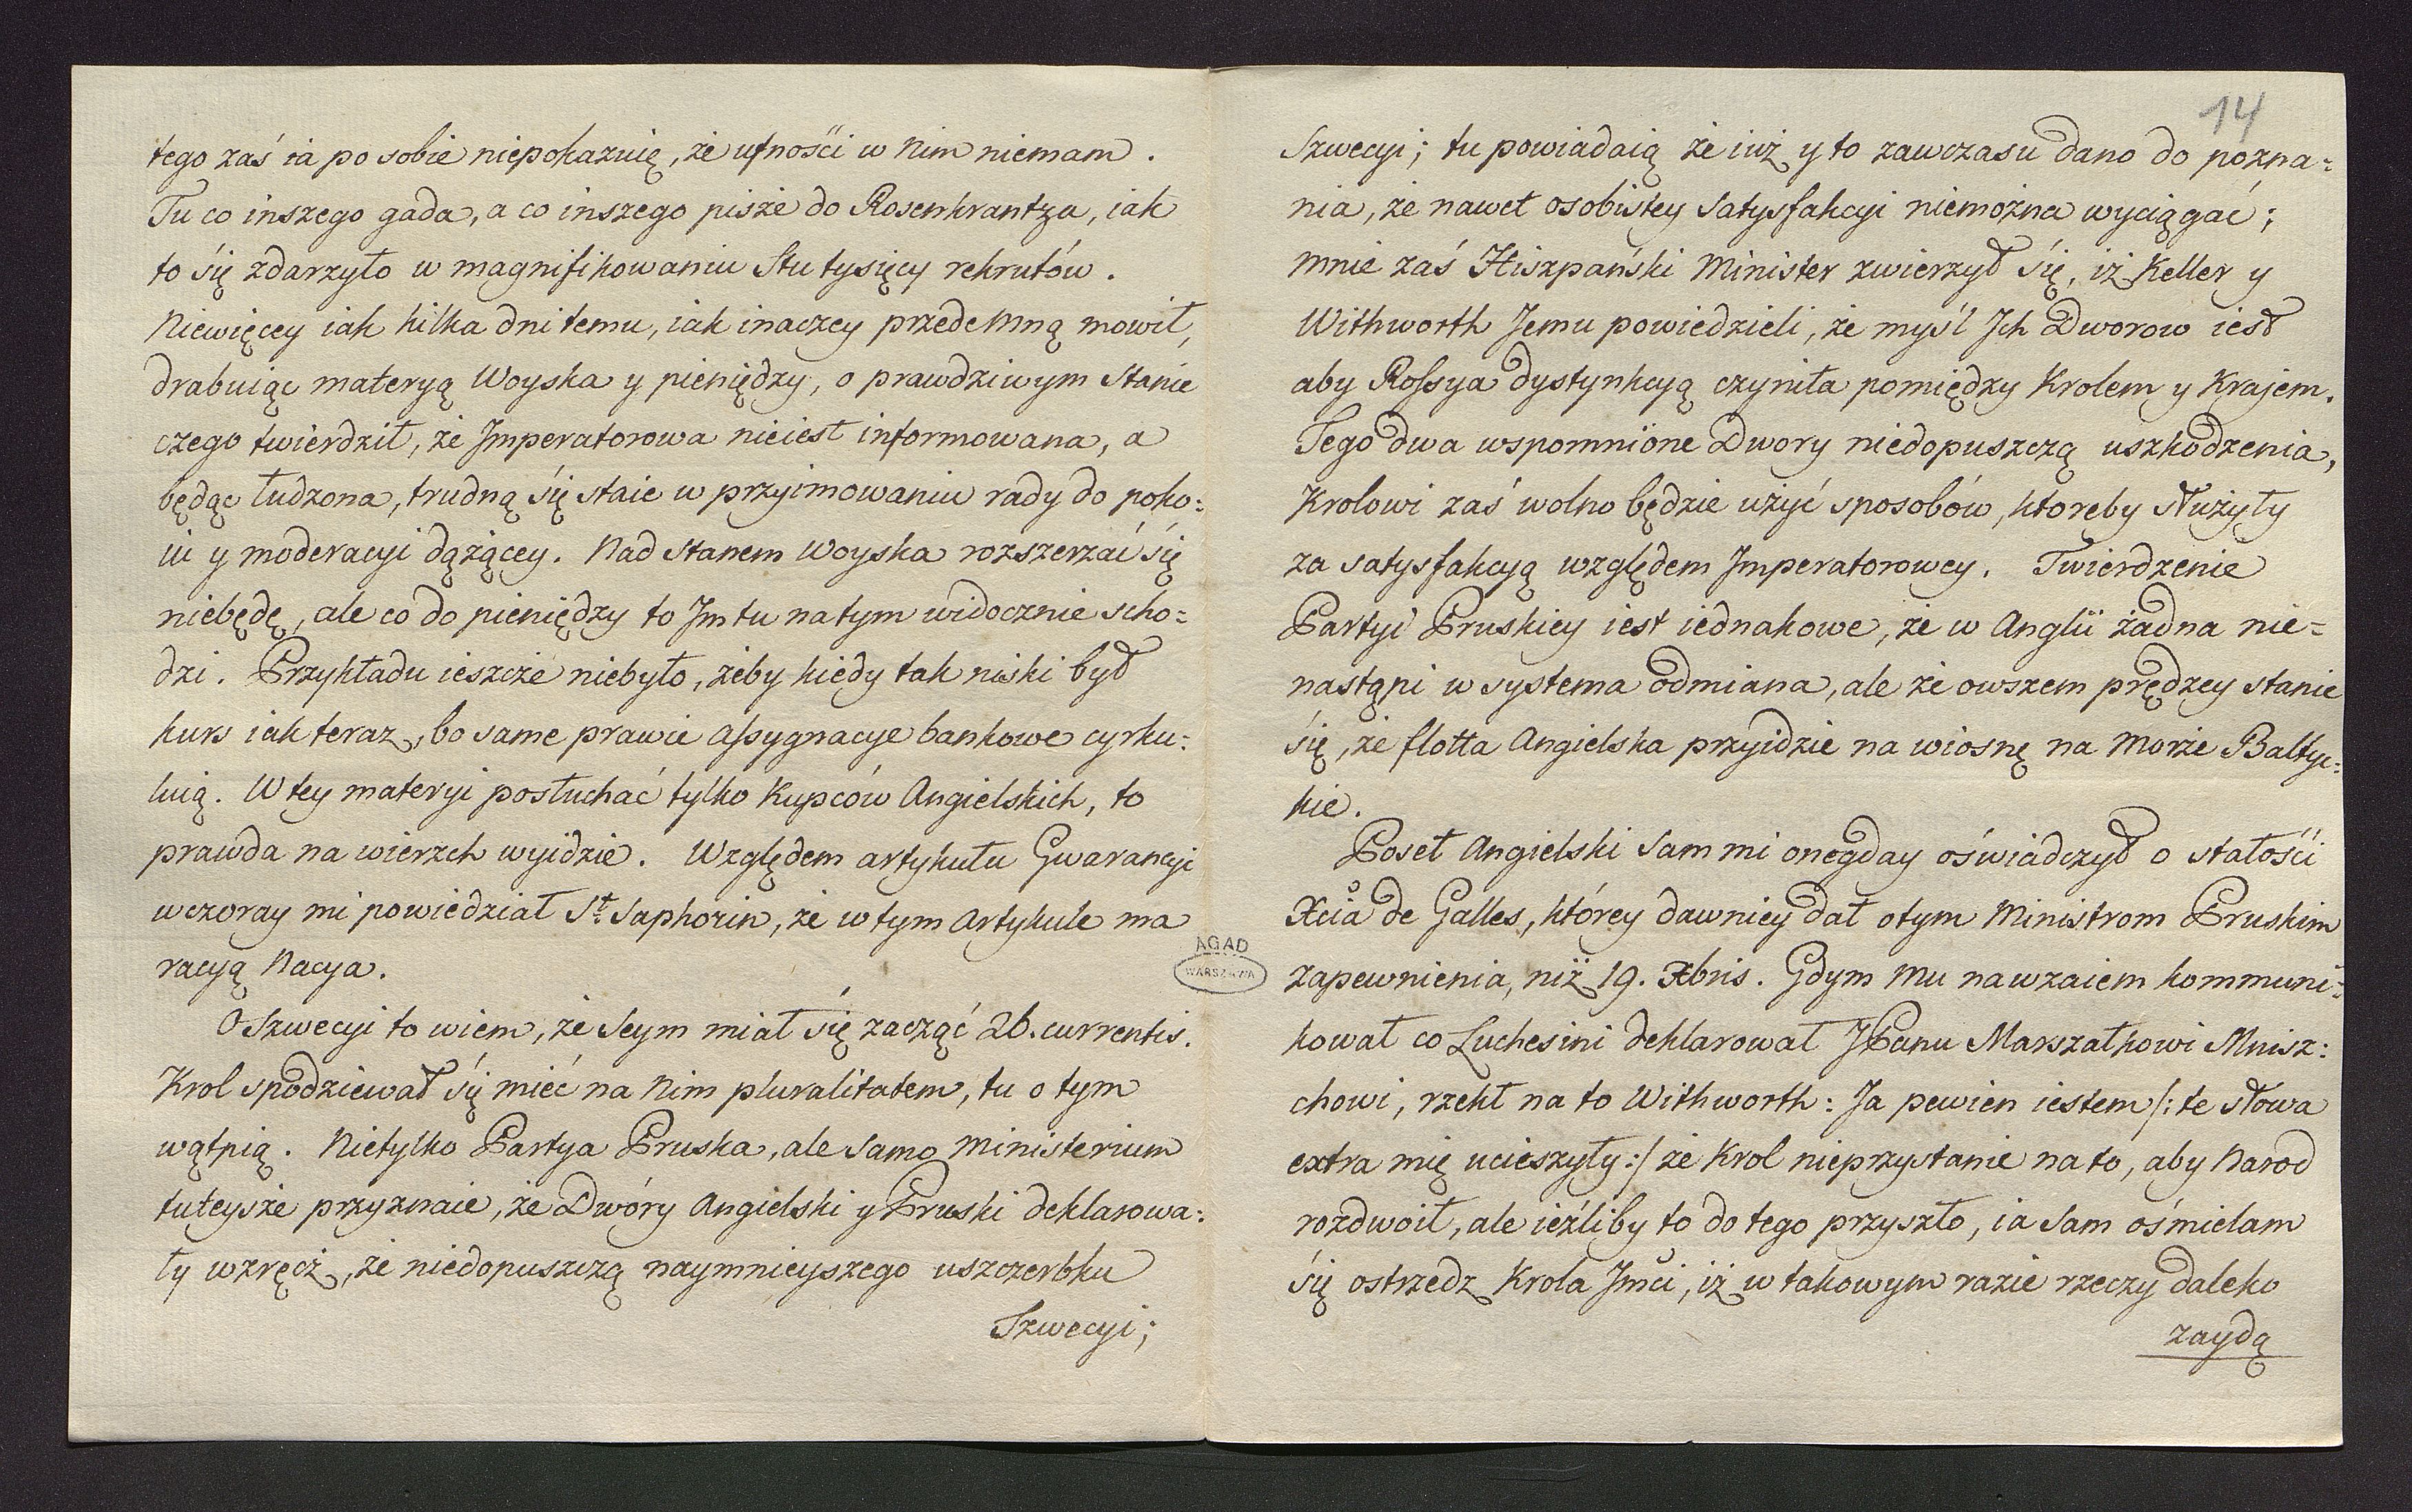 tego zaś ia po sobie niepokazuię, że ufności w Nim niemam.
Tu co inszego gada, a co inszego pisze do Rosenkrantza, iak
to się zdarzyło w magnifikowaniu Stu tysięcy rekrutów.
Niewięcey iak kilka dni temu, iak inaczey przedemną mowił,
drabuiąc materyą Woyska y pieniędzy, o prawdziwym Stanie
czego twierdził, że Imperatorowa nieiest informowana, a
będąc łudzona, trudną się staie w przyimowaniu rady do poko=
iu y moderacyi dążącey. Nad Stanem Woyska rozszerzać się
niebędę, ale co do pieniędzy to Im tu na tym widocznie scho=
dzi. Przykładu ieszcze niebyło, żeby kiedy tak niski był
kurs iak teraz, bo same prawie assygnacye bankowe cyrku:
luią. W tey materyi posłuchać tylko Kupców Angielskich, to
prawda na wierzch wyidzie. Względem artykułu Gwarancyi
wczoray mi powiedział St. Saphorin, że w tym Artykule ma
racyą Nacya.
O Szwecyi to wiem, że Seym miał się zacząć 26. currentis.
Krol spodziewał się mieć na Nim pluralitatem, tu o tym
wątpią. Nietylko Partya Pruska, ale samo Ministerium
tuteysze przyznaie, że Dwóry Angielski y Pruski deklarowa:
ły wzręcz, że niedopuszczą naymnieyszego uszczerbku
Szwecyi;
14
Szwecyi; tu powiadaią że iuż y to zawczasu dano do pozna:
nia, że nawet osobistey Satysfakcyi niemożna wyciągać;
mnie zaś Hiszpański Minister zwierzył się, iż Keller y
Withworth Jemu powiedzieli, że myśl Ich Dworow iest
aby Rossya dystynkcyą czyniła pomiędzy Krolem y Krajem.
Tego dwa wspomnione Dwory niedopuszczą uszkodzenia,
Krolowi zaś wolno będzie użyć sposobów, ktoreby służyły
za satysfakcyą względem Imperatorowey. Twierdzenie
Partyi Pruskiey iest iednakowe, że w Anglii żadna nie=
nastąpi w systema odmiana, ale że owszem prędzey stanie
się, że flotta Angielska przyidzie na wiosnę na Morze Baltyc:
kie.
Poseł Angielski Sam mi onegday oświadczył o stałości
Xcia de Galles, którey dawniey dał o tym Ministrom Pruskim
zapewnienia, niż 19. Xbris. Gdym Mu nawzaiem kommuni:
kował co Luchesini deklarował JPanu Marszałkowi Mnisz:
chowi, rzekł na to Withworth: Ja pewien iestem /: te słowa
extra mię ucieszyły :/ że Krol nieprzystanie na to, aby Narod
rozdwoił, ale ieźliby to do tego przyszło, ia sam ośmielam
się ostrzedz Krola Jmci, iż w takowym razie rzeczy daleko
zaydą
AGAD
WARSZAWA